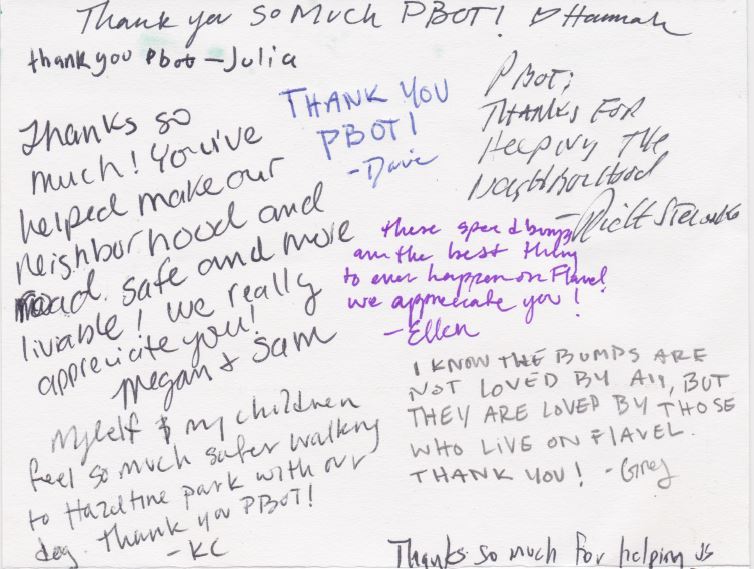 Thank you so Much PBOT! ♡ Hannah
thank you Pbot - Julia
THANK YOU
PBOT!
- Dave
PBOT;
THANKS FOR
Helping The
Neighborhood
- Rick
Thanks so
much! You've
helped make our
neighborhood and
road safe and more
livable! We really
appreciate you!
Megan & Sam
these speed bumps
are the best thing
to ever happen on Flavel
we appreciate you!
- Ellen
I KNOW THE BUMPS ARE
NOT LOVED BY All, BUT
THEY ARE LOVED BY THOSE
WHO LIVE ON FLAVEL.
THANK YOU! - Greg
Myself & my children
feel so much safer walking
to Hazeltine park with our
dog. Thank you PBOT!
- KC
Thanks so much for helping us